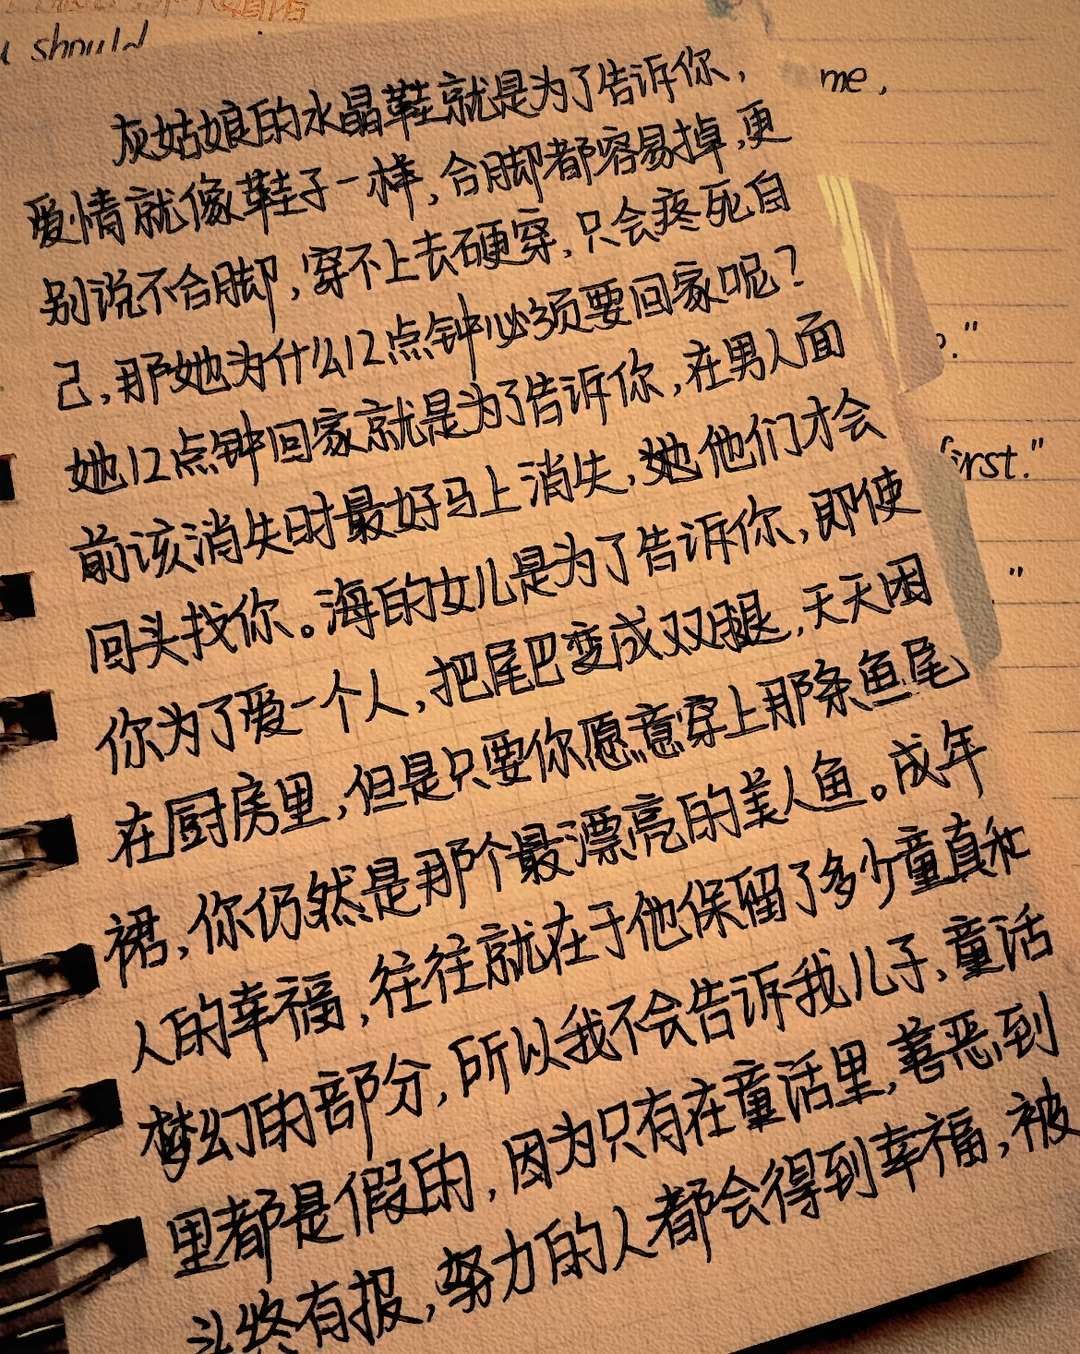 should
灰姑娘的水晶鞋就是为了告诉你,
爱情就像鞋子一样,合脚都容易掉,更
别说不合脚,穿不上去硬穿,只会疼死自
己,那她为什么12点钟必须要回家呢?
她12点钟回家就是为了告诉你,在男人面
前该消失时最好马上消失,她他们才会
回头找你。海的女儿是为了告诉你,即使
你为了爱一个人,把尾巴变成双腿,天天困
在厨房里,但是只要你愿意穿上那条鱼尾
裙,你仍然是那个最漂亮的美人鱼。成年
人的幸福,往往就在于他保留了多少童真和
梦幻的部分,所以我不会告诉我儿子,童话
里都是假的,因为只有在童话里,善恶到
头终有报,努力的人都会得到幸福,被
me,
first."